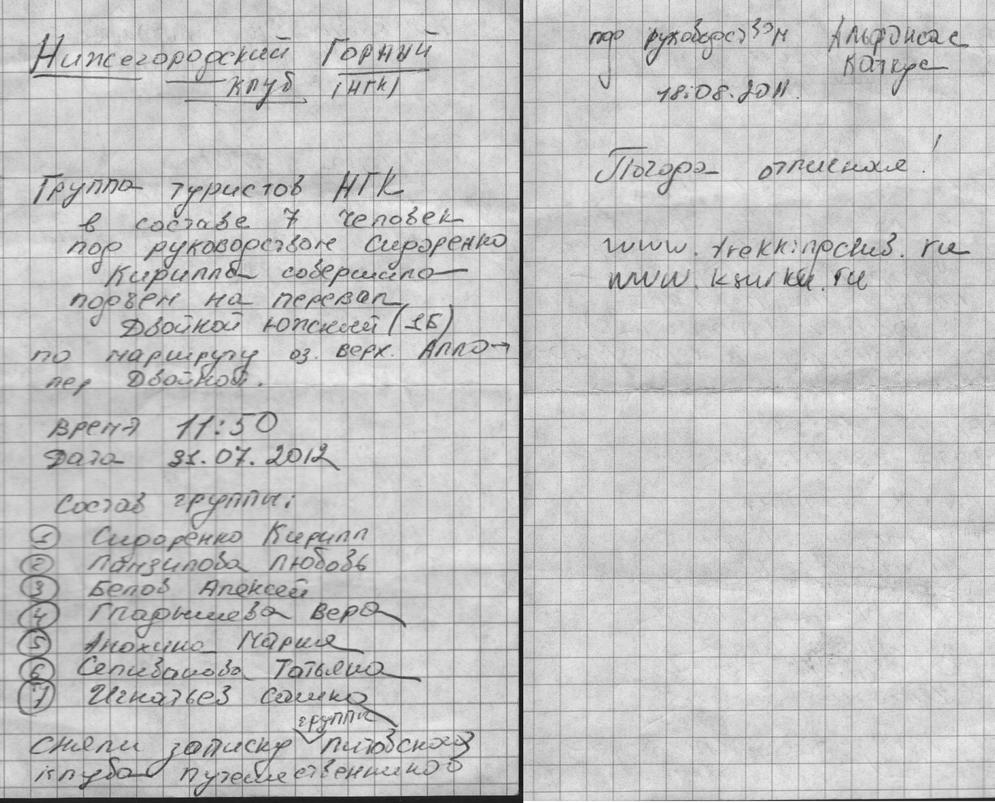 Нижегородский Горный
клуб (НГК)
Группа туристов НГК
в составе 7 человек
под руководством Сидоренко
Кирилла совершила
подъем на перевал
Двойной Южский (1Б)
по маршруту оз. верх. Алло→
пер Двойной.
Время 11:50
Дата 31.07.2012
Состав группы:
① Сидоренко Кирилл
② Любовь
③ Белов Алексей
④ Гладышева Вера
⑤ Анохина Мария
⑥ Селиванова Татьяна
⑦ Игнатьев Сашка
группы
Сняли записку Литовского
клуба путешественников
под руководством Альфонсас
Каткус
18.08.2011.
Погода отличная!
www.trekkingclub.ru
www.ru